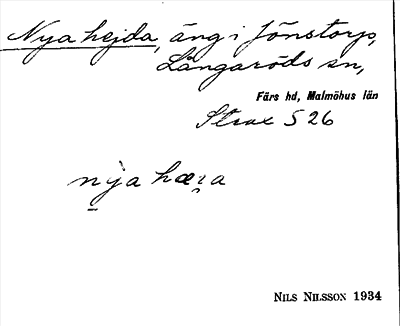 Nya hejda, äng i Jönstorp,
Långaröds sn,
Färs hd, Malmöhus län
526
nya
NILS NILSSON 1934